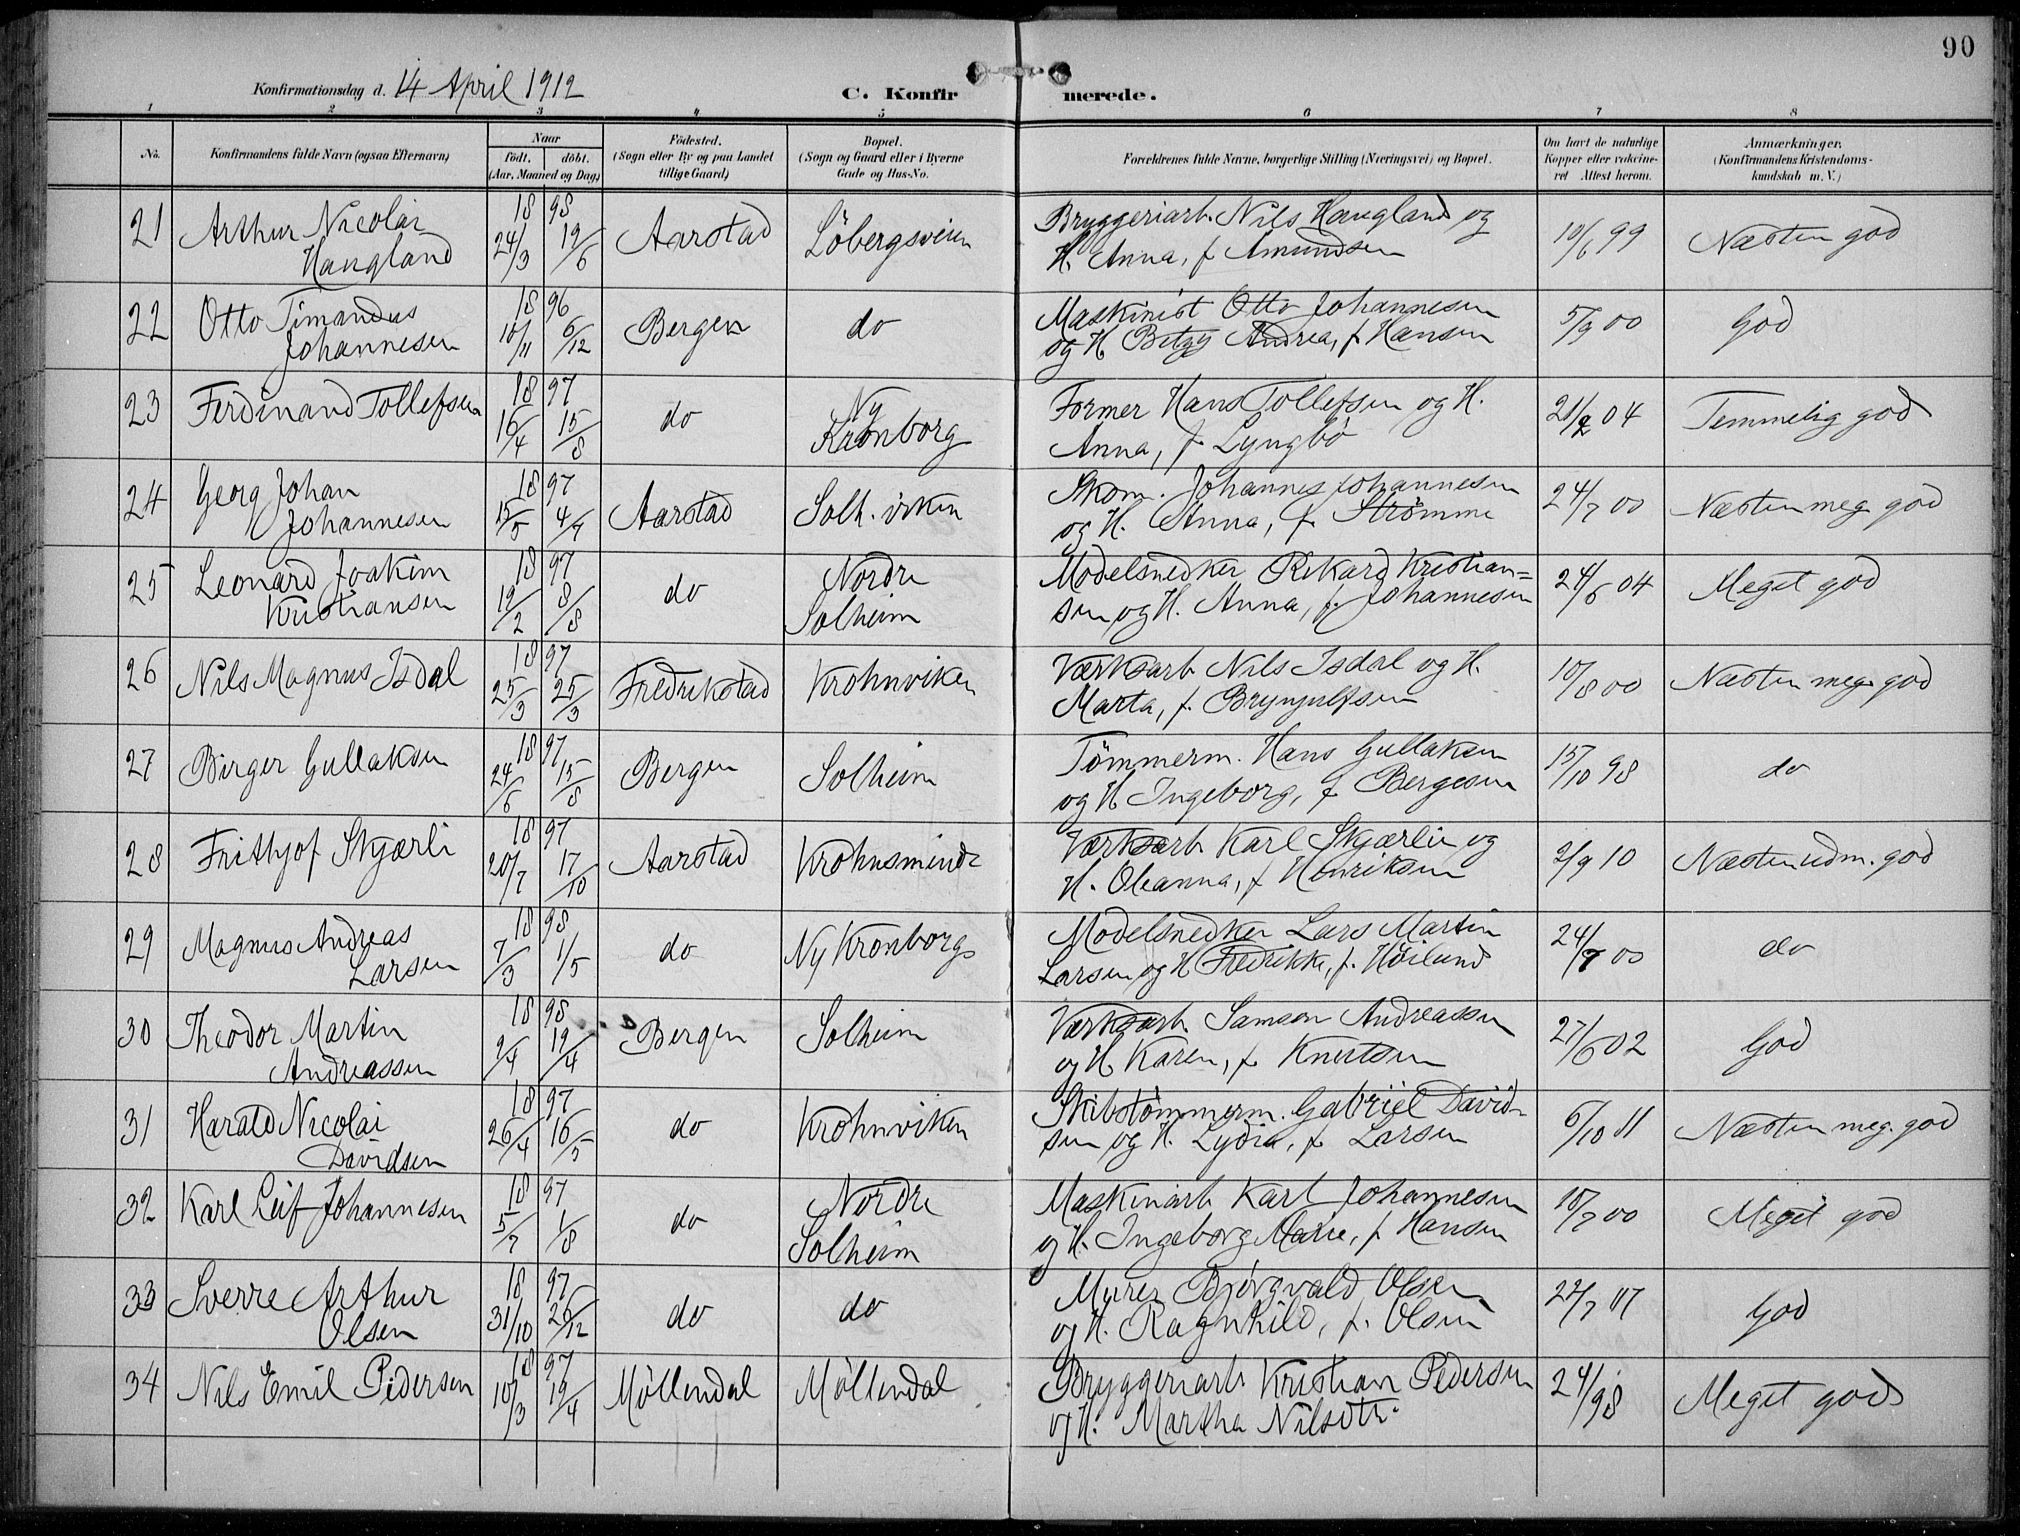 90
Konfirmationsdag d. 14 April 1912 C. Konfirmerede.
1 2 3 4 5 6 7 8
No. Konfirmandens fulde Navn (ogsaa Efternavn) Naar födt. döbt. (Aar, Maaned og Dag) Födested. (Sogn eller By og paa Landet tillige Gaard) Bopæl. (Sogn og Gaard eller i Byerne Gade og Hus-No. Forældrenes fulde Navne, borgerlige Stilling (Næringsvei) og Bopæl. Om havt de naturlige Kopper eller vakcineret Attest herom. Anmærkninger. (Konfirmandens Kristendomskundskab m. V.)
21 Arthur Nicolai Haugland 1898 24/3 19/6 Aarstad Löbergsveien Bryggeriarb. Nils Haugland og
H. Anna, f Amundsen 10/6 99 Næsten god
22 Otto Timandus Johannesen 1896 10/11 6/12 Bergen do Maskinist Otto Johannesen
og H Betzy Andrea, f. Hansen 5/9 00 God
23 Ferdinand Tollefsen 1897 16/4 15/8 do Ny Kronborg Former Hans Tollefsen og H.
Anna, f. Lyngbö 21/2 04 Temmelig god
24 Georg Johan Johannesen 1897 15/5 4/7 Aarstad Solh. viken Skom. Johannes Johannesen
og H. Anna, f. Strömme 24/7 00 Næsten meg god
25 Leonard Joakim Kristiansen 1897 19/2 8/8 do Nordre Solheim Modelsnedker Rikard Kristian=
sen og H. Anna, f. Johannesen 24/6 04 Meget god
26 Nils Magnus Isdal 1897 25/3 25/3 Fredrikstad Krohnviken Værksarb Nils Isdal og H.
Marta, f. Brynjulfsen 10/8 00 Næsten meg. god
27 Birger Gullaksen 1897 24/6 15/8 Bergen Solheim Tömmerm. Hans Gullaksen
og H Ingeborg, f Bergesen 15/10 98 do
28 Frithjof Skjærli 1897 20/7 17/10 Aarstad Krohnsminde Værksarb Karl Skjærli og
H. Oleanna, f Henriksen 2/9 10 Næsten udm. god
29 Magnus Andreas Larsen 1898 7/3 1/5 do Ny Kronborg Modelsnedker Lars Martin
Larsen og H Fredrikke, f. Höilund 24/7 00 do
30 Theodor Martin Andreassen 1898 9/4 19/4 Bergen Solheim Værksarb. Samson Andreassen
og H Karen, f Knutsen 27/6 02 God
31 Harald Nicolai Davidsen 1897 26/4 16/5 do Krohnviken Skibstömmerm. Gabriel David-
sen og H. Lydia, f Larsen 6/10 11 Næsten meg. god
32 Karl Leif Johannesen 1897 5/7 1/8 do Nordre Solheim Maskinarb Karl Johannesen
og H. Ingeborg Marie, f Hansen 10/7 00 Meget god
33 Sverre Arthur Olsen 1897 31/10 26/12 do do Murer Björgvald Olsen
og H. Ragnhild, f. Olsen 22/7 07 God
34 Nils Emil Pedersen 1897 10/3 19/4 Möllendal Möllendal Bryggeriarb Kristian Pedersen
og H. Martha Nilsdtr 24/9 8 Meget god